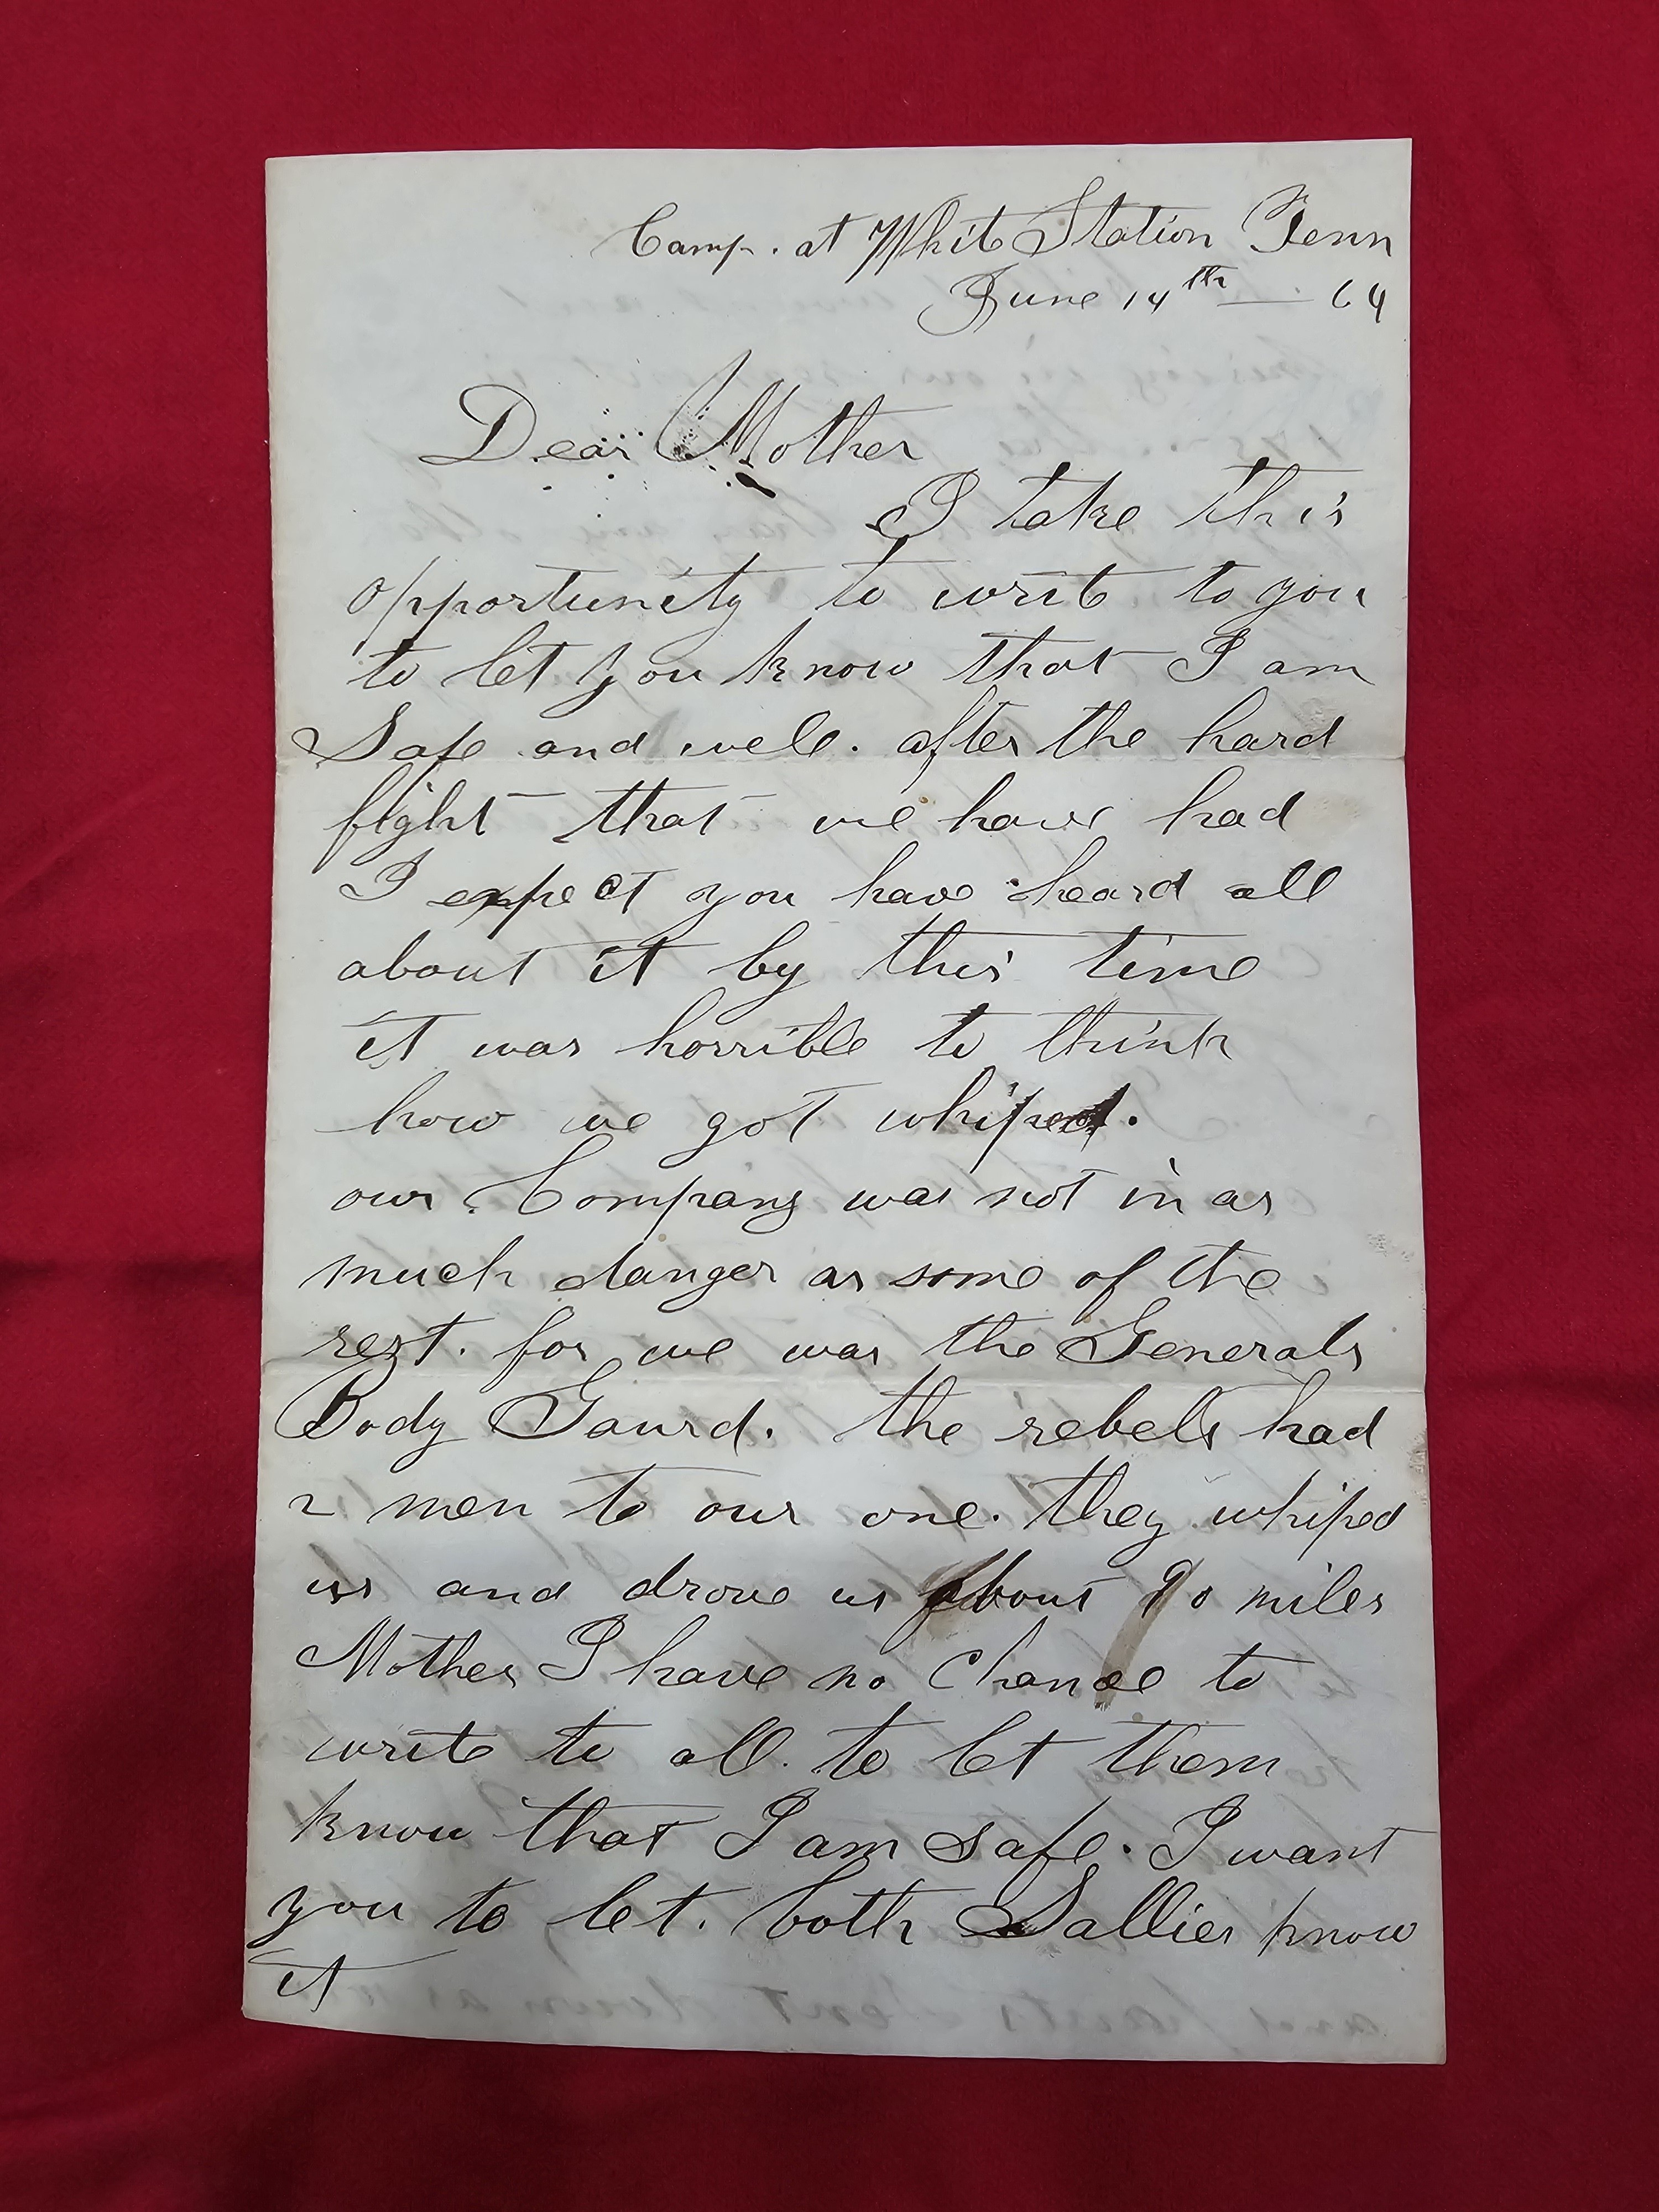 Camp. at Whit Station Tenn
June 14th — 64
Dear Mother
I take this
opportunity to writ to you
to let you know that I am
Safe and well. after the hard
fight that we have had
I expect you have heard all
about it by this time
it was horrible to think
how we got whiped.
our Company was not in as
much danger as some of the
rest. for we was the Generals
Body Gaurd. the rebels had
2 men to our one. they whiped
us and drove us about 90 miles
Mother I have no chance to
write to all. to let them
know that I am safe. I want
you to let. both Sallies know
it